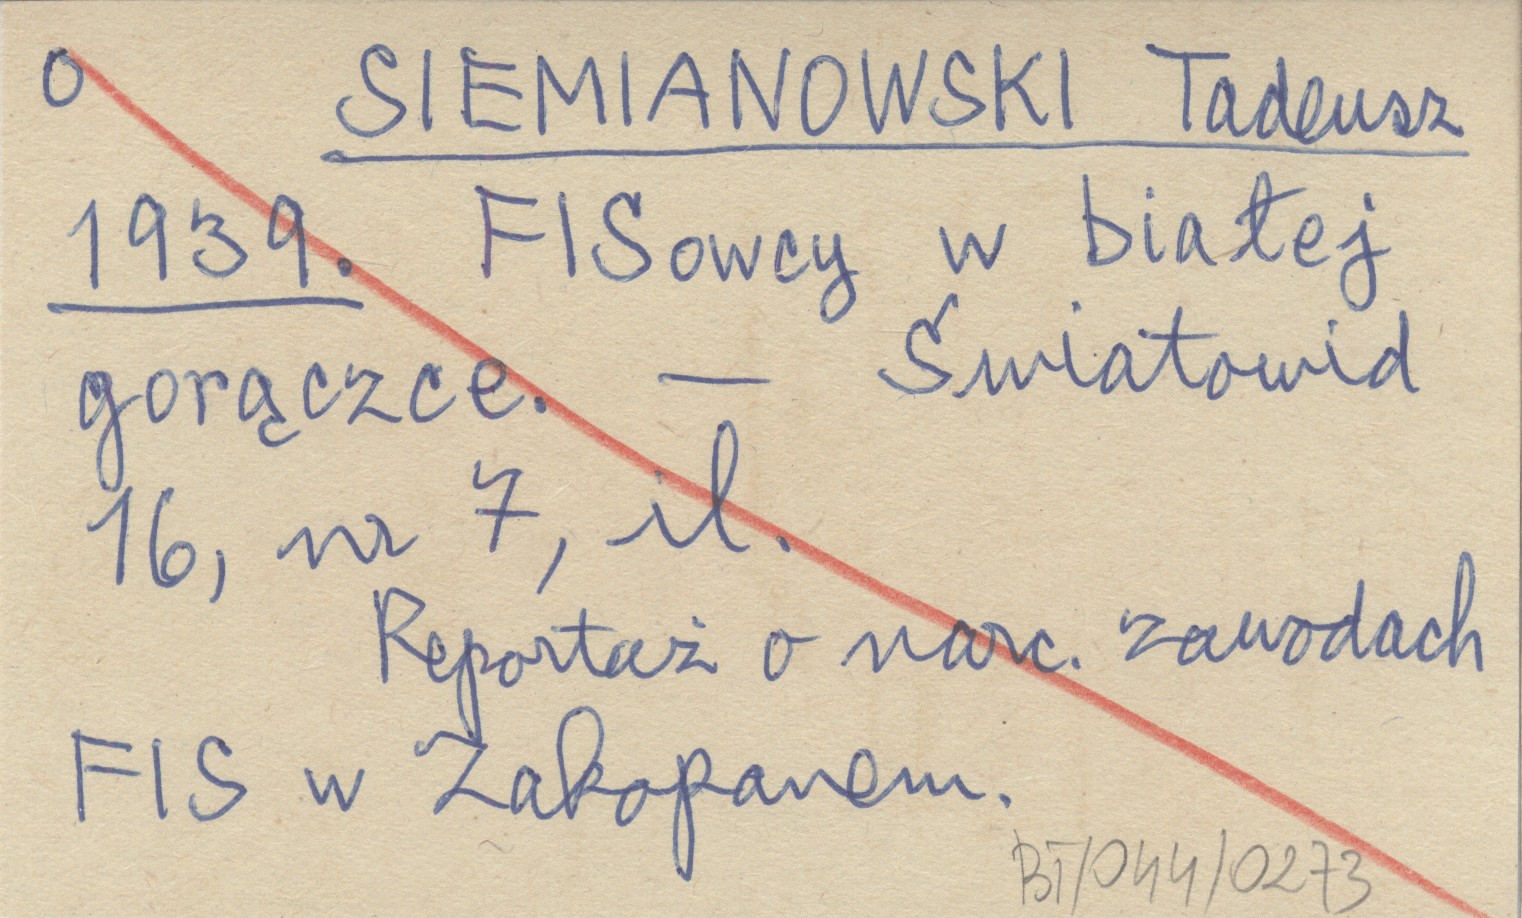 O SIEMIANOWSKI Tadeusz
1939. FISowcy w białej
gorączce. — Światowid
16, nr 7, il.
Reportaż o narc. zawodach
FIS w Zakopanem.
BT/044/0273